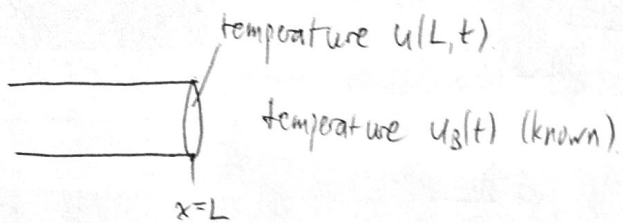 temperature u(L,t)
temperature u_B(t) (known)
x=L